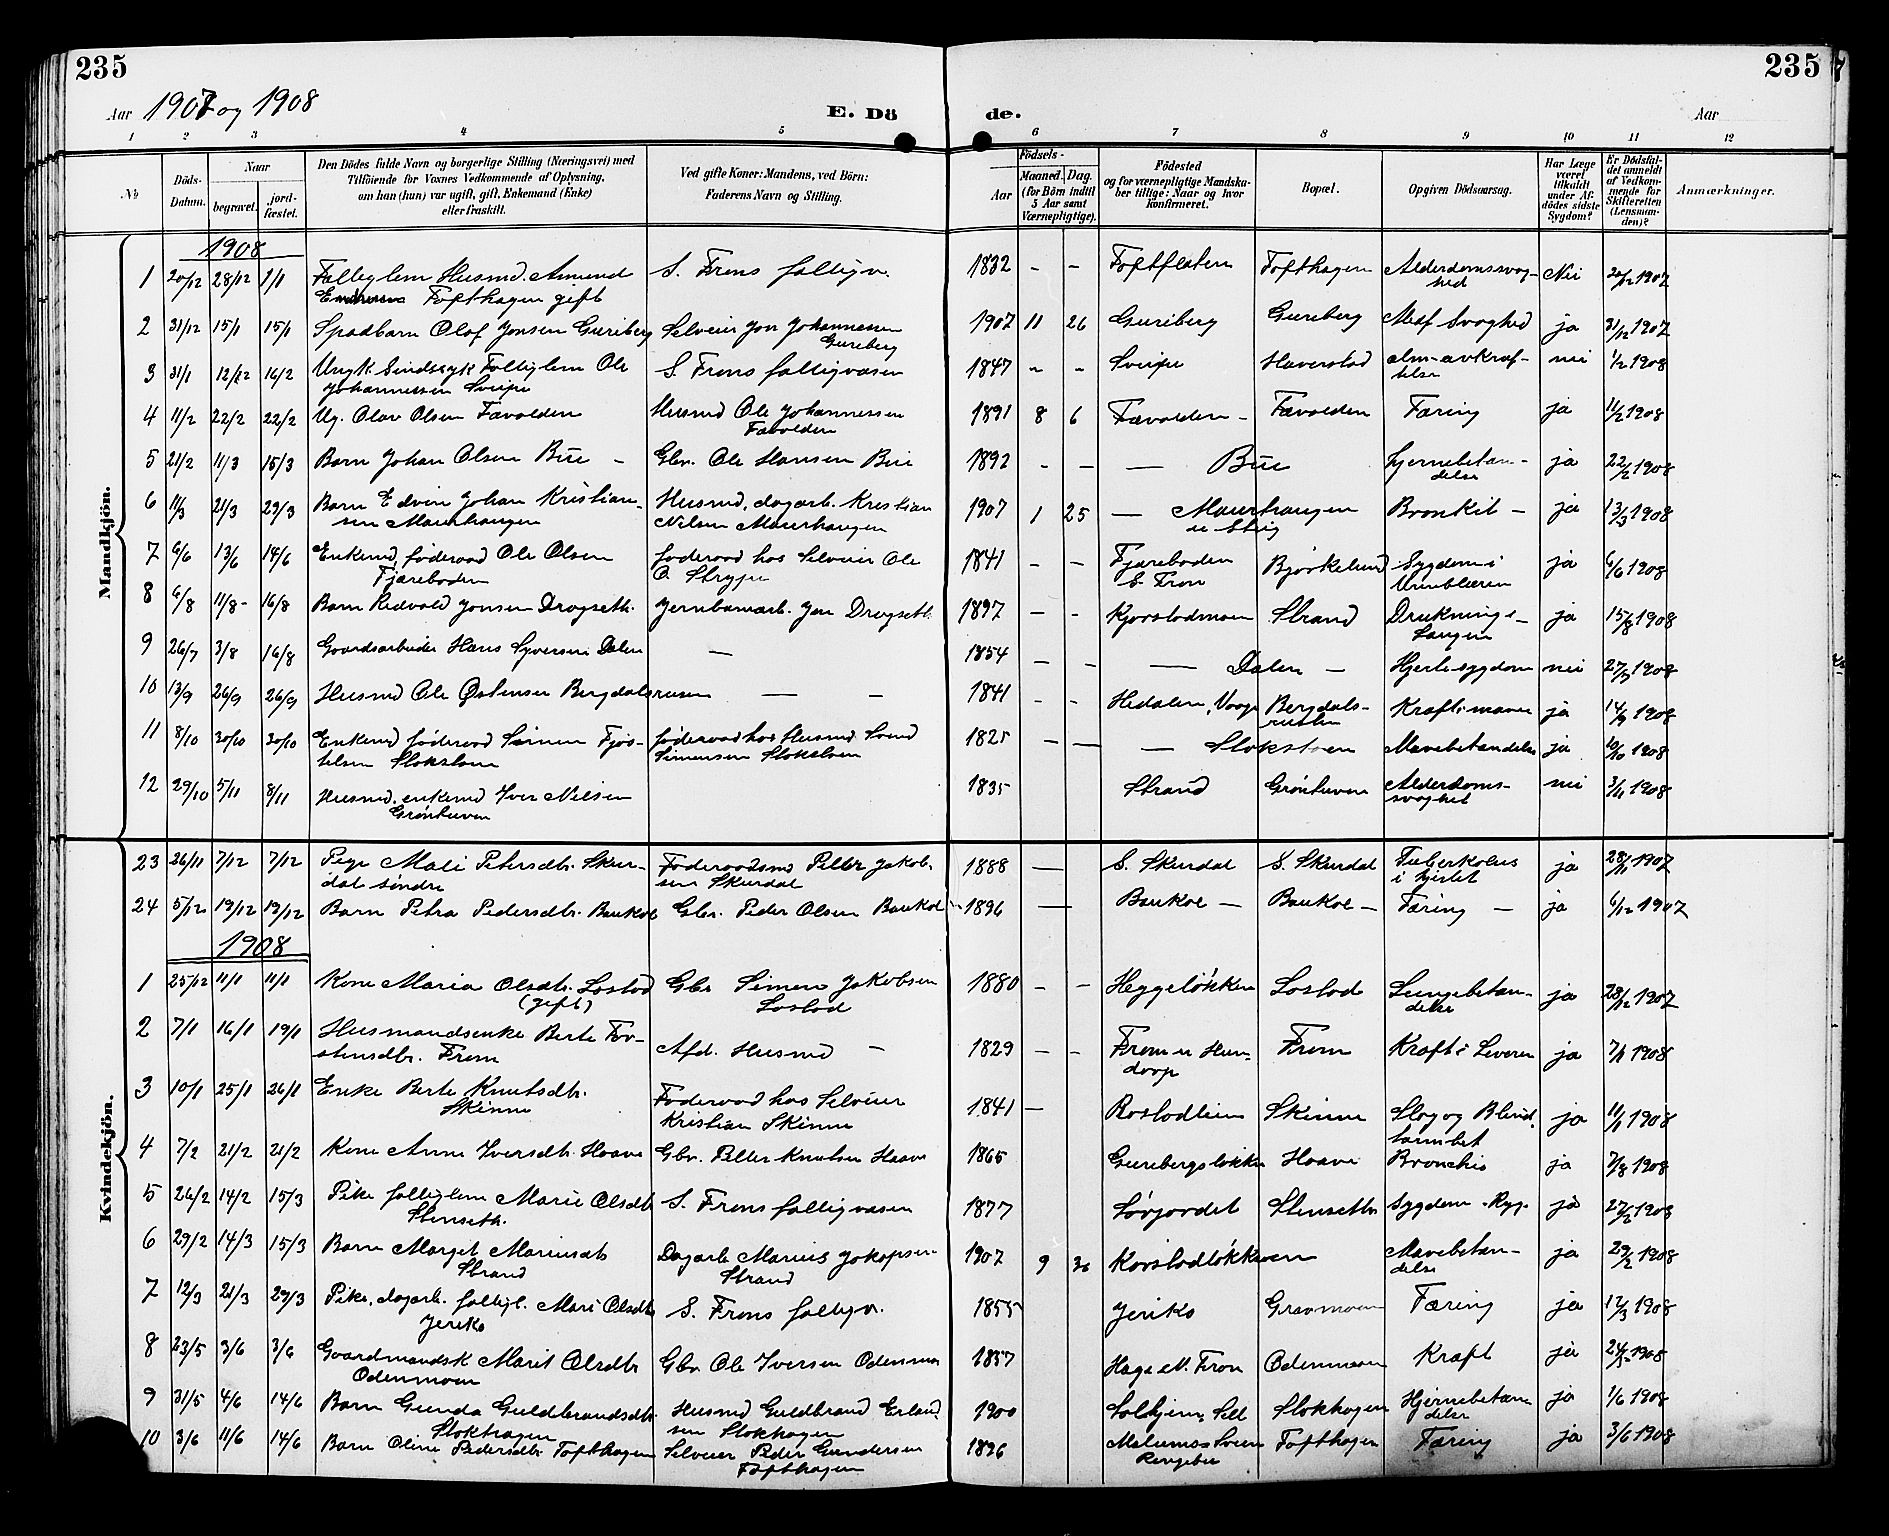 235
235
Aar 1907 og 1908
E. Dö
de.
Aar
1 2 3 4 5 6 7 8 9 10 11 12
No
Döds-Datum.
Naar
begravet.
jord-fæstet.
Den Dödes fulde Navn og borgerlige Stilling (Næringsvei) med
Tilföiende for Voxnes Vedkommende af Oplysning,
om han (hun) var ugift, gift, Enkemand (Enke)
eller fraskilt.
Ved gifte Koner: Mandens, ved Börn:
Faderens Navn og Stilling.
Födsels-
Aar
Maaned. Dag.
(for Börn indtil
5 Aar samt
Værnepligtige).
Födested
og for værnepligtige Mandska-
ber tillige: Naar og hvor
konfirmeret.
Bopæl.
Opgiven Dödsaarsag.
Har Læge
været
tilkaldt
under Af-
dödes sidste
Sygdom?
Er Dödsfal-
det anmeldt
af Vedkom-
mende for
Skifteretten
(Lensman-
den)?
Anmærkninger.
Mandkjön.
1908
1 20/12 28/12 1/1 Fattiglem Husmd. Amund Tofthagen gift S. Frons fattigv. 1832 - - Toftflaten Tofthagen Alderdomssvag-hed Nei 20/12 1907
2 31/12 15/1 15/1 Spadbarn Olaf Jonsen Gureberg Selveier Jon Johannessen Gureberg 1907 11 26 Gureberg Gureberg Medf Svaghed ja 31/12 1907
3 31/1 12/2 16/2 Ungk Sindssyk Fattiglem Ole Johannessen Sveipe S. Frons fattigvæsen 1847 - - Sveipe Haverstad alm-avkræf-telse nei 1/2 1908
4 11/2 22/2 22/2 Ug. Olav Olsen Tævolden Husmd Ole Johannessen Tævolden 1891 8 6 Tævolden - Tævolden Tæring ja 11/2 1908
5 21/2 11/3 15/3 Barn Johan Olsen Bue - Gbr. Ole Hansen Bue 1892 - - - Bue Hjernebetæn-delse ja 22/2 1908
6 11/3 21/3 29/3 Barn Edvin Johan Kristian-sen Maurhaugen Husmd, dagarb. Kristian Nilsen Maurhaugen 1907 1 25 - Maurhaugen Bronkit - ja 13/3 1908
7 6/6 13/6 14/6 Enkemd, föderaad Ole Olsen Fjæreboden föderaad hos Selveier Ole O. Strype 1841 - - Fjæreboden S. Fron Björkelund Sygdom i Urinblæren ja 6/6 1908
8 6/8 11/8- 16/8 Barn Redvald Jonsen Drogseth. Jernbanearb. Jon Drogseth 1897 - - Kjorstadmoen Strand Drukning i Laagen ja 15/8 1908
9 26/7 3/8 16/8 Gaardsarbeider Hans Syversen Dalen - 1854 - - - Dalen - Hjertesygdom nei 27/7 1908
10 13/9 26/9 26/9 Husmd Ole Østensen Bergdalsrusen - - 1841 - - Hedalen, Vaage Bergdals-rusten Kræft i maven ja 14/9 1908
11 8/10 30/10 30/10 Enkemd föderaad Simen Fjös-telsen Slokstoen föderaad hos Husmd. Svend Simensen Slokstoen 1825 - - - Slokstoen Mavebetændelse ja 10/10 1908
12 29/10 5/11 8/11 Husmd. enkemd Iver Nilsen Grönhuven 1835 Strand Grönhuven Alderdoms-svaghet nei 3/11 1908
Kvindekjön.
23 26/11 7/12 7/12 Pige Mali Petersdtr. Skur-dal söndre Föderaadsmd Petter Jakob-sen Skurdal 1888 - S. Skurdal S. Skurdal Tuberkolus i hjertet ja 28/11 1907
24 5/12 19/12 19/12 Barn Petra Pedersdtr. Baukol Gbr. Peder Olsen Baukol 1896 - Baukol - Baukol - Tæring - ja 6/12 1907
1908
1 25/12 11/1 11/1 Kone Maria Olsdtr. Lostad (gift) Gbr Simen Jakobsen Lostad 1880 - - Heggelökken Lostad Lungebetæn-delse ja 28/12 1907
2 7/1 16/1 19/1 Husmandsenke Berte Tor-stensdtr. From Afd. Husmd - 1829 - - From n Hun-dorp From Kræft i Leveren ja 7/1 1908
3 10/1 25/1 26/1 Enke Berte Knutsdtr. Skinne Föderaad hos Selveier Kristian Skinne 1841 - Rostadlien Skinne Slag og Blind-tarmbet ja 11/1 1908
4 7/2 21/2 21/2 Kone Anne Iversdtr. Haave Gbr. Petter Knutsen Haave 1865 Gurebergslökken Haave Bronchis ja 7/8 1908
5 26/2 14/2 15/3 Pike fattiglem Marie Olsdtr Stenseth. S. Frons fattigvæsen 1877 Sörjordet Stenseth Sygdom i Ryg. ja 27/2 1908
6 29/2 14/3 15/3 Barn Margit Mariusdtr Strand Dagarb Marius Jakopsen Strand 1907 9 30 Korstadlökken Mavebetæn-delse ja 29/2 1908
7 12/3 21/3 29/3 Pike, dagarb. fattigl. Mari Olsdtr Jeriko S. Frons fattigv. 1855 Jeriko Gravmoen Tæring ja 12/3 1908
8 23/5 3/6 3/6 Gaardmandsk Marit Olsdtr Odenmoen Gbr. Ole Iversen Odenmoen 1857 Hage N. Fron Odenmoen Kræft ja 24/5 1908
9 31/5 4/6 14/6 Barn Gunda Guldbrandsdtr. Slokhagen Husmd Guldbrand Erland-sen Slokhagen 1900 Solhjem, Sell Slokhagen Hjernebetæn-delse ja 1/6 1908
10 3/6 11/6 14/6 Barn Oline Pedersdtr. Tofthagen Selveier Peder Gundersen Tofthagen 1896 Ringebu Tofthagen Tæring ja 3/6 1908